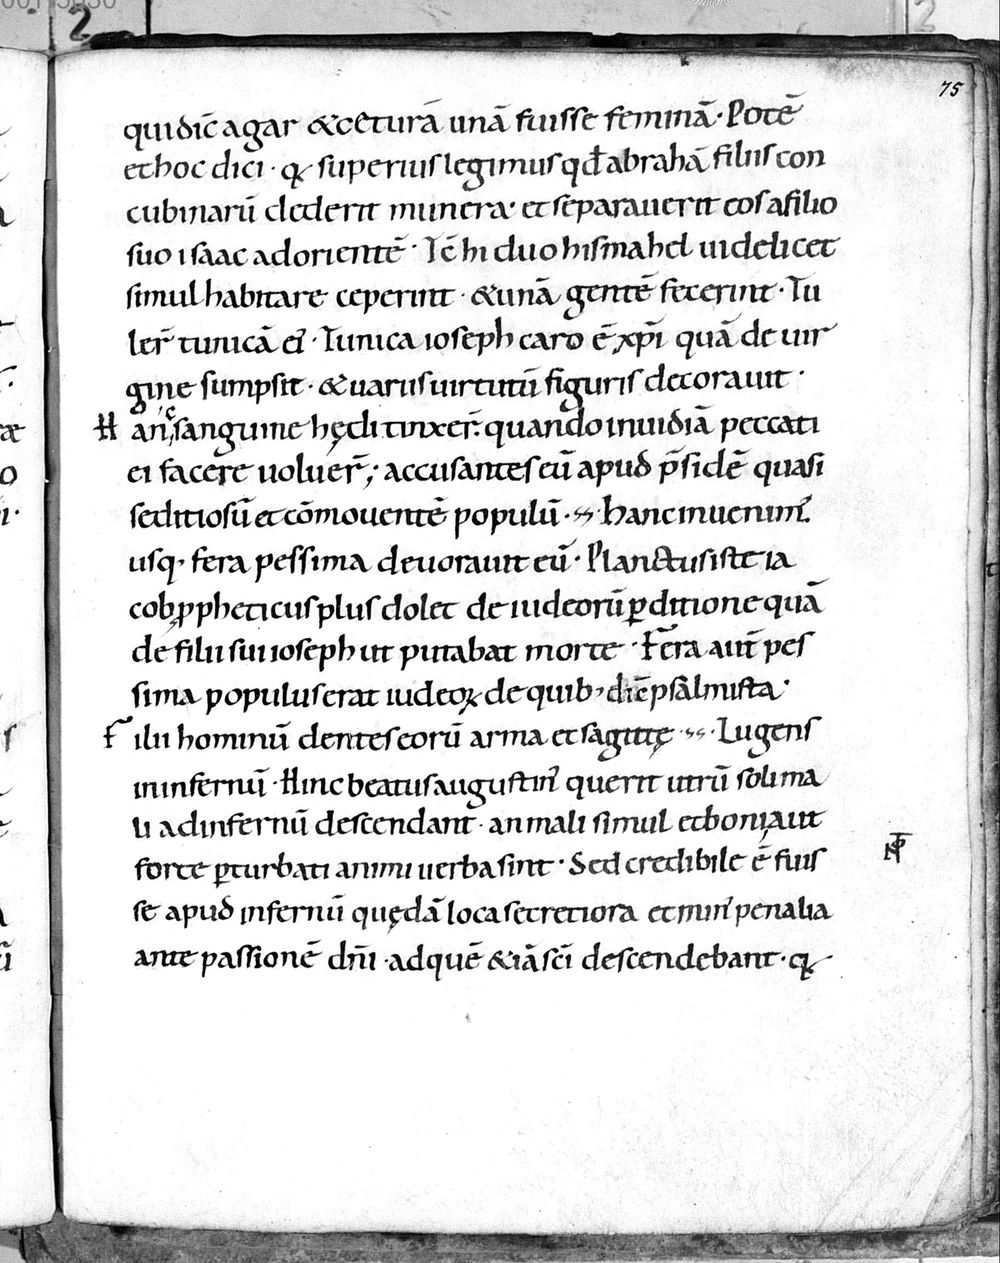 75
quidic̄ agar &ceturā unā fuisse feminā· Potē
et hoc dici · q superius legimus qđ abrahā filiis con
cubinarū dederit munera· et separauerit eos a filio
suo isaac ad orientē · Tc̄ hi duo hismahel uidelicet
simul habitare ceperint · &unā gentē fecerint · Tu
ler̄ tunicā ei · Tunica ioseph caro ē xp̄i quā de uir
gine sumpsit · & uariis uirtutū figuris decorauit ·
Hanc sanguine hędi tinxer̄· quando inuidiā peccati
ei facere uoluer̄; accusantes eū apud p̄sidē quasi
seditiosū et cōmouentē populū · hanc inuenim·
usq· fera pessima deuorauit eū · Planctus iste ia
cob ꝓpheticus plus dolet de iudeorū ꝑditione quā
de filii sui ioseph ut putabat morte · Fera aut̄ pes
sima populus erat iudeoꝝ de quib· dic̄ psalmista·
Filii hominū dentes eorū arma et sagittę · Lugens
in infernū · Hinc beatus augustin· querit utrū soli ma
li ad infernū descendant · an mali simul et boni, aut
forte ꝑturbati animi uerba sint · Sed credibile ē fuis
se apud infernū quędā loca secretiora et min· penalia
ante passionē dn̄i · ad quē &iā sc̄i descendebant · q